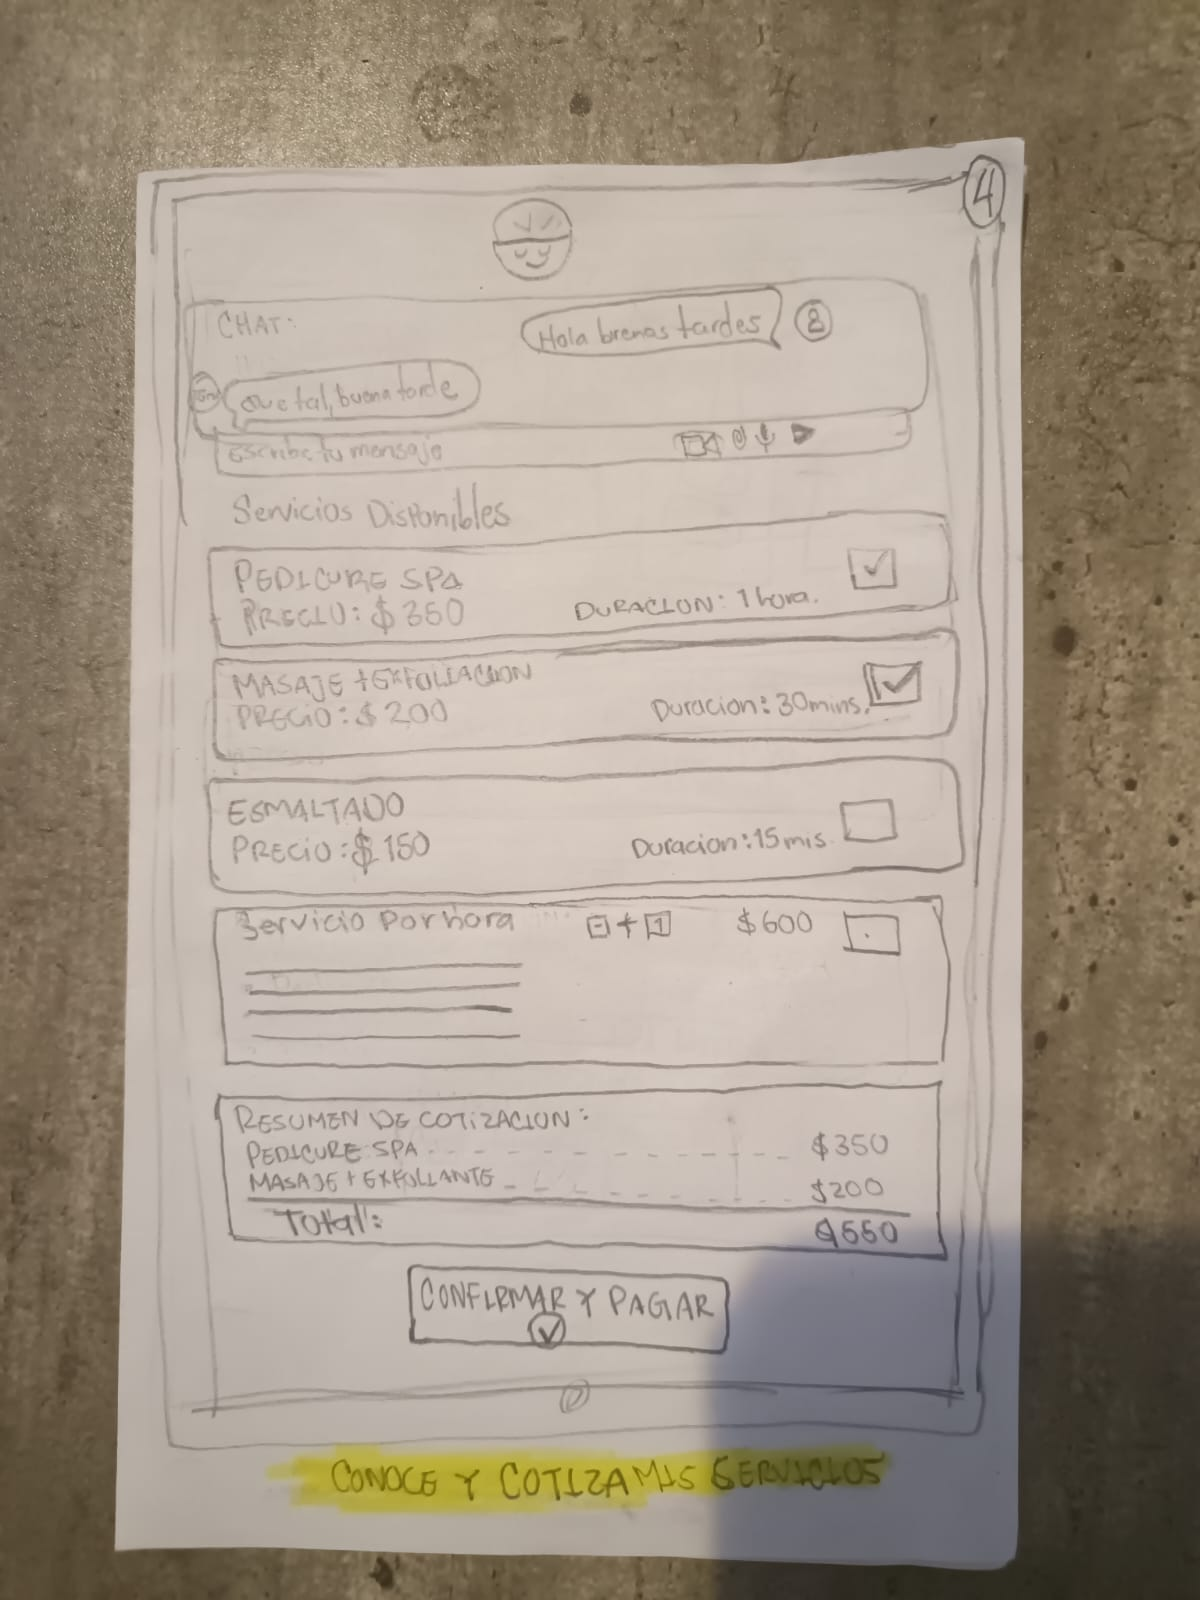 4
CHAT:
Hola brenas tardes
que tal, buena tarde
Escribe tu mensaje
Servicios Disponibles
PEDICURE SPA
PRECIO: $350
DURACION: 1 hora.
MASAJE + EXFOLIACION
PRECIO: $200
Duracion: 30mins.
ESMALTADO
PRECIO: $150
Duracion: 15 mis.
Servicio Por hora - + 1 $600
RESUMEN DE COTIZACION:
PEDICURE SPA - - - - - - - - - $350
MASAJE + EXFOLIANTE - - - - - - $200
Total: $550
CONFIRMAR Y PAGAR
CONOCE Y COTIZA MIS SERVICIOS